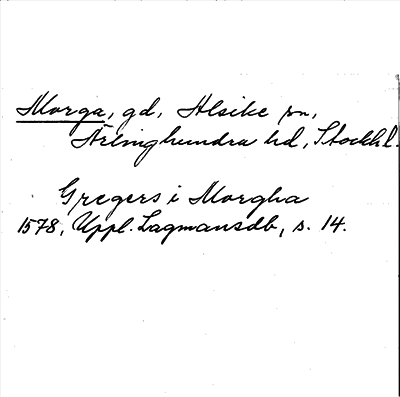 Morga, gd, Alsike sn,
Ärlinghundra hd, Stockh. l.
Gregers i Morgha
1578, Uppl. Lagmansdb, s. 14.